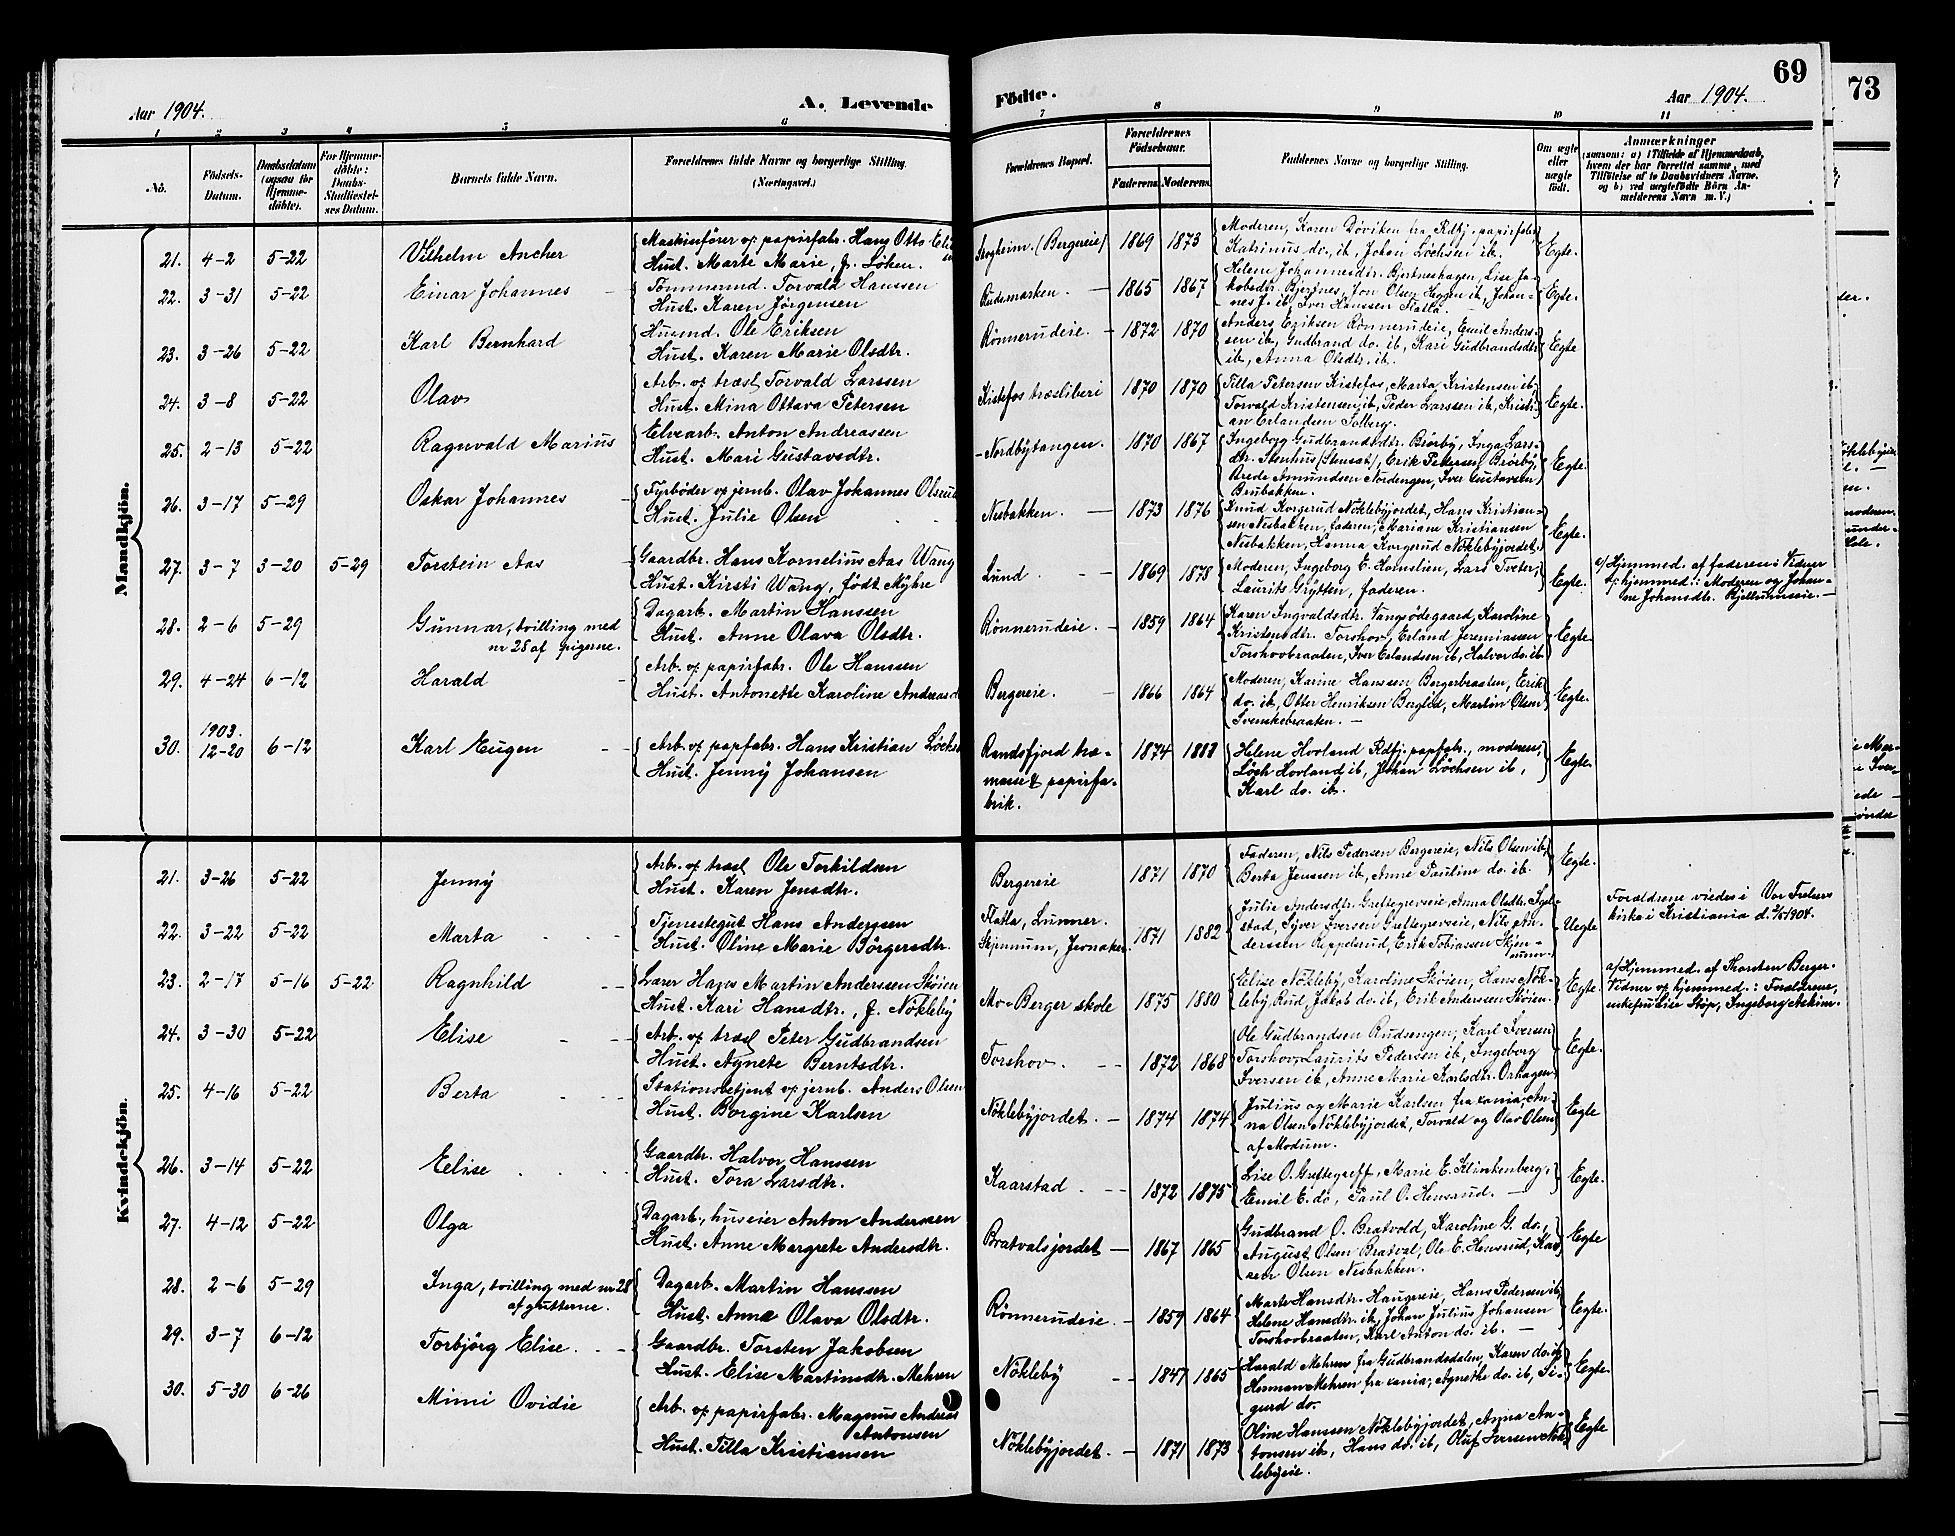 Aar 1904.
A. Levende
Födte.
69
Aar 1904.
73
1 2 3 4 5 6 7 8 9 10 11
No.
Födsels-
Datum.
Daabsdatum
(ogsaa for
Hjemme-
döbte).
For Hjemme-
döbte:
Daabs-
Stadfæstel-
ses Datum.
Barnets fulde Navn.
Forældrenes fulde Navne og borgerlige Stilling.
(Næringsvei.)
Forældrenes Bopæl.
Forældrenes
Födselsaar.
Faderens. Moderens.
Faddernes Navne og borgerlige Stilling.
Om ægte
eller
uægte
født.
Anmærkninger
(saasom: a) i Tilfælde af Hjemmedaab,
hvem der har forrettet samme, med
Tilföielse af to Daabsvidners Navne,
og b) ved uægtefödte Börn An-
melderens Navn m. V.)
Mandkjön.
21. 4-2 5-22 Vilhelm Ancher
Maskinfører og papirfabr. Hans Otto
Hust. Marte Marie, f. Løken.
(Bergereie) 1869 1873
Moderen, Karen Døviken fra Rdfj. papirfabr
Katrinus do. ib, Johan Løchsen ib.
Egte.
22. 3-31 5-22 Einar Johannes
Tømmermd. Torvald Hanssen
Hust. Karen Jørgensen
Rudemarken. 1865 1867
Helene Johannesdtr. Bjertneshagen, Lise Ja-
kobsdtr. Bjertnes, Jon Olsen Heggen ib, Johan-
nes J. ib, Iver Hanssen Flatla.
Egte.
23. 3-26 5-22 Karl Bernhard
Husmd. Ole Eriksen
Hust. Karen Marie Olsdtr.
Rønnerudeie. 1872 1870
Anders Eriksen Rønnerudeie, Emil Anders-
sen ib, Gudbrand do. ib, Kari Gudbrandsdtr
ib, Anna Olsdtr. ib.
Egte
24. 3-8 5-22 Olav
Arb. v/ træsl. Torvald Larssen
Hust. Mina Ottava Petersen
Kistefos træsliberi 1870 1870
Tilla Petersen Kistefos, Marta Kristensen ib,
Torvald Kristensen ib, Peder Larssen ib, Kristi-
an Erlandsen Solberg.
Egte.
25. 2-13 5-22 Ragnvald Marius
Elvearb. Anton Andreassen
Hust. Mari Gustavsdtr.
Nordbytangen. 1870 1867
Ingeborg Gudbrandsdtr. Brørby, Inga Lars-
dtr. Stenhus (Stensat), Erik Pedersen Brørby,
Brede Amundsen Nordengen, Iver Gustavsen
Brubakken.
Egte.
26. 3-17 5-29 Oskar Johannes
Fyrbøder v/ jernb. Olav Johannes
Hust. Julie Olsen
Nesbakken. 1873 1876
Knud Korgerud Nöklebyjordet, Hans Kristian-
sen Nesbakken, faderen, Mariane Kristiansen
Nesbakken, Hanna Korgerud Nöklebyjordet.
Egte.
27. 3-7 3-20 5-29 Torstein Aas
Gaardbr. Hans Kornelius Aas Wang
Hust. Kirsti Wang, født Myhre
Lund. 1869 1878
Moderen, Ingeborg E. Homslien, Lars Tveter,
Laurits Grytten, faderen.
Egte.
a/ Hjemmed. af faderen: Vidner
v/ hjemmed.: Moderen og Johan-
ne Johansdtr. Kjellumseie.
28. 2-6 5-29 Gunnar, tvilling med
nr 28 af pigerne.
Dagarb. Martin Hanssen
Hust. Anne Olava Olsdtr.
Rønnerudeie. 1859 1864
Karen Ingvaldsdtr. Vangsødegaard, Karoline
Kristensdtr. Torshov, Erland Jeremiassen
Torshovbraaten, Iver Erlandsen ib, Halvor do. ib.
Egte.
29. 4-24 6-12 Harald
Arb. v/ papirfabr. Ole Hanssen
Hust. Antonette Karoline
Bergereie. 1866 1864
Moderen, Karine Hanssen Bergerbraaten, Erik
do. ib, Otter Henriksen Berglud, Martin Olsen
Svenskebraaten.
Egte.
30. 1903.
12-20 6-12 Karl Eugen
Arb. v/ papfabr. Hans Kristian
Hust. Jenny Johansen
Randsfjord træ-
masse & papirfa-
brik. 1874
Helene Hovland Rdfj. papfabr., moderen,
Løch Hovland ib, Johan Løchsen ib,
Karl do. ib.
Egte.
Kvindekjön.
21. 3-26 5-22 Jenny
Arb. v/ træsl Ole Torkildsen
Hust. Karen Jensdtr.
Bergereie 1871 1870
Faderen, Nils Pedersen Bergereie, Nils Olsen ib,
Berta Jenssen ib, Anne Pauline do. ib.
Egte.
22. 3-22 5-22 Marta
Tjenestegut Hans Anderssen
Hust. Oline Marie Börgersdtr.
Flatla, Lunner.
Skjennum, Jevnaker. 1871 1882
Julie Andersdtr. Greftegreveie, Anna Olsdtr.
stad, Syver Iversen Greftegreveie, Nils An-
derssen Opplerud, Erik Tobiassen Skjen-
num.
Uegte
Forældrene viedes i Vor Frelsers
kirke i Kristiania
23. 2-17 5-16 5-22 Ragnhild
Lærer Hans Martin Anderssen Skøien
Hust. Kari Hansdtr., f. Nökleby
Mo-Berger skole 1875 1880
Elise Nökleby, Karoline Skøien, Hans Nök-
leby Rud, Jakob do. ib, Erik Anderssen Skøien
Egte
a/ Hjemmed. af Thorsten Berger.
Vidner v/ hjemmed.: Forældrene,
enkefru Lise Støp, Ingeborg
24. 3-30 5-22 Elise
Arb. v/ træsl Peter Gudbrandsen
Hust. Agnete Berntsdtr.
Torshov. 1872 1868
Ole Gudbrandsen Rudsengen, Karl Iversen
Torshov, Laurits Pedersen ib, Ingeborg
Iversen ib, Anne Marie Karlsdtr. Orhagen
Egte.
25. 4-16 5-22 Berta
Stationsbetjent v/ jernb. Anders Olsen
Hust. Borgine Karlsen
Nöklebyjordet. 1874 1874
Julius og Marie Karlsen fra Xania, An-
na Olsen Nöklebyjordet, Torvald og Olav Olsen
af Modum.
Egte
26. 3-14 5-22 Elise
Gaardbr. Halvor Hanssen
Hust. Tora Larsdtr.
Kaarstad. 1872 1875
Lise O. Greftegreff, Marie E. Klinkenberg,
Emil E. do, Paul O. Hensrud.
Egte.
27. 4-12 5-22 Olga
Dagarb., huseier Anton Anderssen
Hust. Anne Margrete Andersdtr.
Bratvalsjordet 1867 1865
Gudbrand O. Bratvold, Karoline G. do.,
August Olsen Bratval, Ole E. Hensrud,
Olsen Nesbakken.
Egte
28. 2-6 5-29 Inga, tvilling med nr 28
af gutterne.
Dagarb. Martin Hanssen
Hust. Anne Olava Olsdtr.
Rønnerudeie. 1859 1864
Marte Hansdtr. Haugereie, Hans Pedersen ib,
Helene Hansdtr. ib, Johan Julius Johansen
Torshovbraaten, Karl Anton do. ib.
Egte.
29. 3-7 6-12 Torbjörg Elise.
Gaardbr. Torsten Jakobsen
Hust. Elise Martinsdtr. Mehren
Nökleby 1847 1865
Harald Mehren fra Gudbrandsdalen, Karen do. ib,
Herman Mehren fra Xania, Agnethe do. ib, Si-
gurd do.
Egte.
30. 5-30 6-26 Mimi Ovidie
Arb. v/ papirfabr. Magnus Andreas
Antonsen
Hust. Tilla Kristiansen
Nöklebyjordet. 1871 1873
Oline Hanssen Nöklebyjordet, Anna An-
tonsen ib, Hans do. ib, Oluf Iversen Nök
lebyeie.
Egte